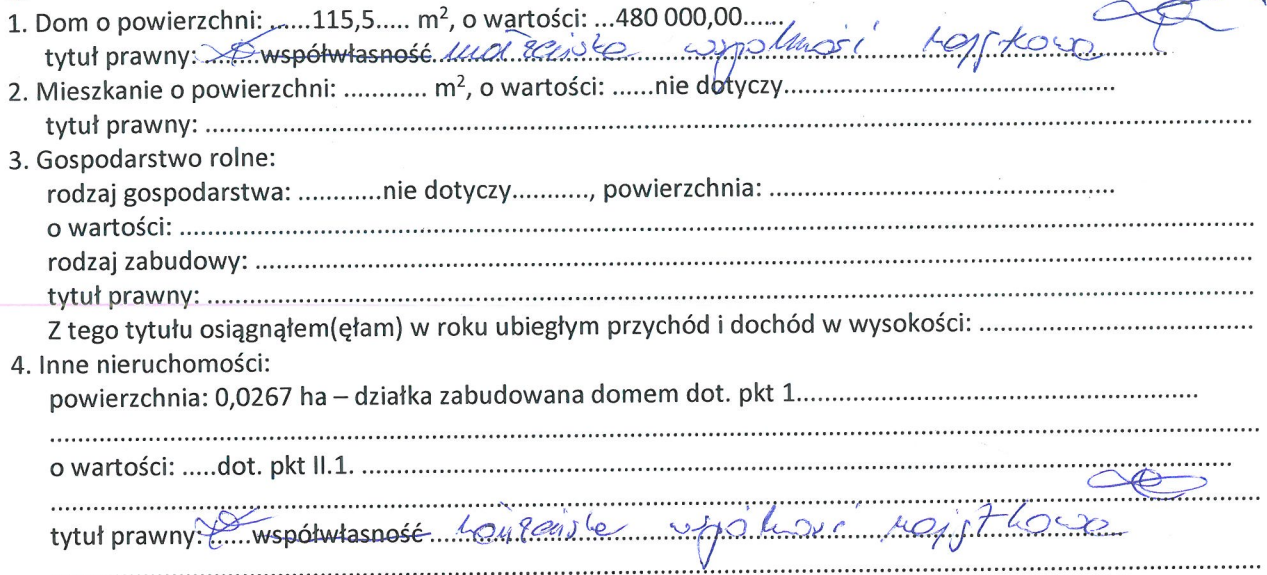 1. Dom o powierzchni: ......115,5..... m², o wartości: ...480 000,00......
tytuł prawny: ........współwłasność małżeńska wspólność majątkowa
2. Mieszkanie o powierzchni: ............ m², o wartości: ......nie dotyczy................................................
tytuł prawny: ..........................................................................................................................................................
3. Gospodarstwo rolne:
rodzaj gospodarstwa: ............nie dotyczy..........., powierzchnia: ..................................................
o wartości: ..............................................................................................................................................................
rodzaj zabudowy: ...................................................................................................................................................
tytuł prawny: ..........................................................................................................................................................
Z tego tytułu osiągnąłem(ęłam) w roku ubiegłym przychód i dochód w wysokości: .......................................
4. Inne nieruchomości:
powierzchnia: 0,0267 ha – działka zabudowana domem dot. pkt 1..........................................................
.................................................................................................................................................................................
o wartości: .....dot. pkt II.1. ..............................................................................................................................
.................................................................................................................................................................................
tytuł prawny: ......współwłasność małżeńska wspólność majątkowa
.................................................................................................................................................................................